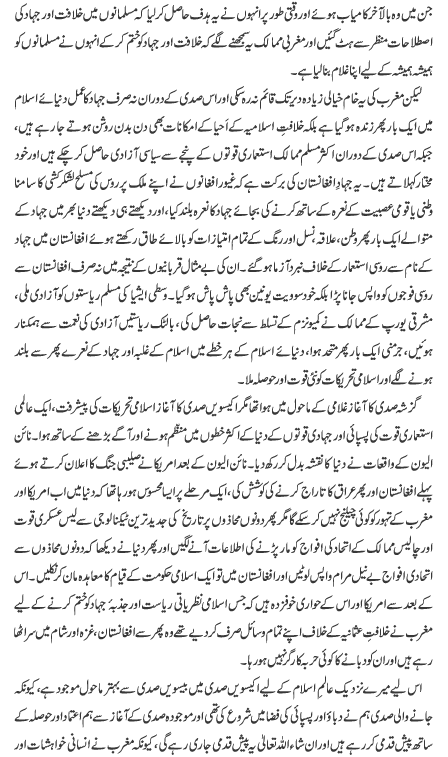 جن میں وہ بالآخر کامیاب ہوئے اور وقتی طور پر انہوں نے یہ ہدف حاصل کر لیا کہ مسلمانوں میں خلافت اور جہاد کی
اصطلاحات منظر سے ہٹ گئیں اور مغربی ممالک یہ سمجھنے لگے کہ خلافت اور جہاد کو ختم کر کے انہوں نے مسلمانوں کو
ہمیشہ ہمیشہ کے لیے اپنا غلام بنا لیا ہے۔
لیکن مغرب کی یہ خام خیالی زیادہ دیر تک قائم نہ رہ سکی اور اس صدی کے دوران نہ صرف جہاد کا عمل دنیائے اسلام
میں ایک بار پھر زندہ ہو گیا ہے بلکہ خلافتِ اسلامیہ کے اَحیا کے امکانات بھی دن بدن روشن ہوتے جا رہے ہیں،
جبکہ اس صدی کے دوران اکثر مسلم ممالک استعماری قوتوں کے پنجے سے سیاسی آزادی حاصل کر چکے ہیں اور خود
مختار کہلاتے ہیں۔ یہ جہادِ افغانستان کی برکت ہے کہ غیور افغانوں نے اپنے ملک پر روس کی مسلح لشکر کشی کا سامنا
وطنی یا قومی عصبیت کے نعرہ کے ساتھ کرنے کی بجائے جہاد کا نعرہ بلند کیا، اور دیکھتے ہی دیکھتے دنیا بھر میں جہاد کے
متوالے ایک بار پھر وطن، علاقہ، نسل اور رنگ کے تمام امتیازات کو بالائے طاق رکھتے ہوئے افغانستان میں جہاد کے
نام سے روسی استعمار کے خلاف نبرد آزما ہو گئے۔ ان کی بے مثال قربانیوں کے نتیجہ میں نہ صرف افغانستان سے
روسی فوجوں کو واپس جانا پڑا بلکہ خود سوویت یونین بھی پاش پاش ہو گیا۔ وسطی ایشیا کی مسلم ریاستوں کو آزادی ملی،
مشرقی یورپ کے ممالک نے کمیونزم کے تسلط سے نجات حاصل کی، بالٹک ریاستیں آزادی کی نعمت سے ہمکنار
ہوئیں، جرمنی ایک بار پھر متحد ہوا، دنیائے اسلام کے ہر خطے میں اسلام کے غلبہ اور جہاد کے نعرے پھر سے بلند
ہونے لگے اور اسلامی تحریکات کو نئی قوت اور حوصلہ ملا۔
گزشتہ صدی کا آغاز غلامی کے ماحول میں ہوا تھا مگر اکیسویں صدی کا آغاز اسلامی تحریکات کی پیشرفت، ایک عالمی
استعماری قوت کی پسپائی اور جہادی قوتوں کے دنیا کے اکثر خطوں میں منظم ہونے اور آگے بڑھنے کے ساتھ ہوا۔ نائن
الیون کے واقعات نے دنیا کا نقشہ بدل کر رکھ دیا۔ نائن الیون کے بعد امریکا نے صلیبی جنگ کا اعلان کرتے ہوئے
پہلے افغانستان اور پھر عراق کا تاراج کرنے کی کوشش کی، ایک مرحلے پر ایسا محسوس ہو رہا تھا کہ دنیا میں اب امریکا اور
مغرب کے تہور کو کوئی چیلنج نہیں کر سکے گا مگر پھر دونوں محاذوں پر تاریخ کی جدید ترین ٹیکنالوجی سے لیس عسکری قوت
اور چالیس ممالک کے اتحاد کی افواج کو مار پڑنے کی اطلاعات آنے لگیں اور پھر دنیا نے دیکھا کہ دونوں محاذوں سے
اتحادی افواج بے نیل مرام واپس لوٹیں اور افغانستان میں تو ایک اسلامی حکومت کے قیام کا معاہدہ مان کر نکلیں۔ اس
کے بعد سے امریکا اور اس کے حواری خوفزدہ ہیں کہ جس اسلامی نظریاتی ریاست اور جذبۂ جہاد کو ختم کرنے کے لیے
مغرب نے خلافتِ عثمانیہ کے خلاف اپنے تمام وسائل صرف کر دیے تھے وہ پھر سے افغانستان، غزہ اور شام میں سر اٹھا
رہے ہیں اور ان کو دبانے کا کوئی حربہ کارگر نہیں ہو رہا۔
اس لیے میرے نزدیک عالمِ اسلام کے لیے اکیسویں صدی میں بیسویں صدی سے بہتر ماحول موجود ہے، کیونکہ
جانے والی صدی ہم نے دباؤ اور پسپائی کی فضا میں شروع کی تھی اور موجودہ صدی کے آغاز سے ہم اعتماد اور حوصلہ کے
ساتھ پیش قدمی کر رہے ہیں اور ان شاء اللہ تعالیٰ یہ پیش قدمی جاری رہے گی، کیونکہ مغرب نے انسانی خواہشات اور